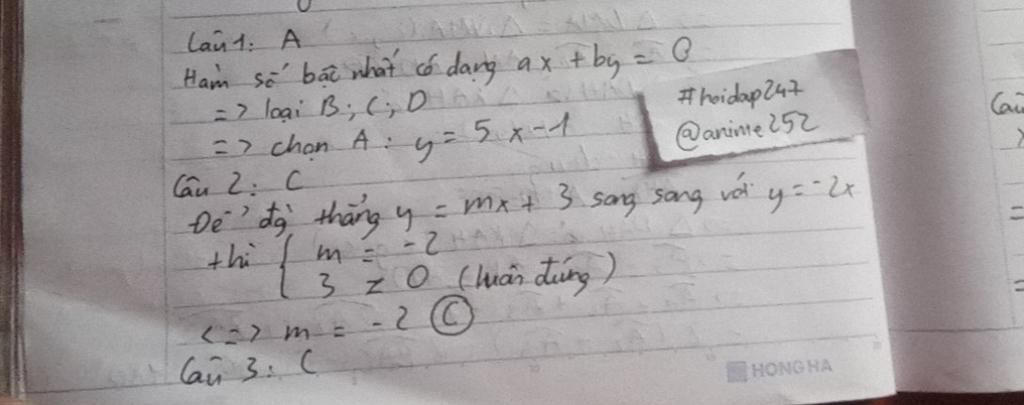 Câu 1: A
Hàm số bậc nhất có dạng ax + by = 0
=> loại B; C; D
=> chọn A: y = 5x - 1
#hoidap247
@anime252
Câu 2: C
Để đg' thẳng y = mx + 3 song song với y = -2x
thì { m = -2
3 ≠ 0 (luôn đúng)
<=> m = -2 Ⓒ
Câu 3: C
HONG HA
Câu
=
=